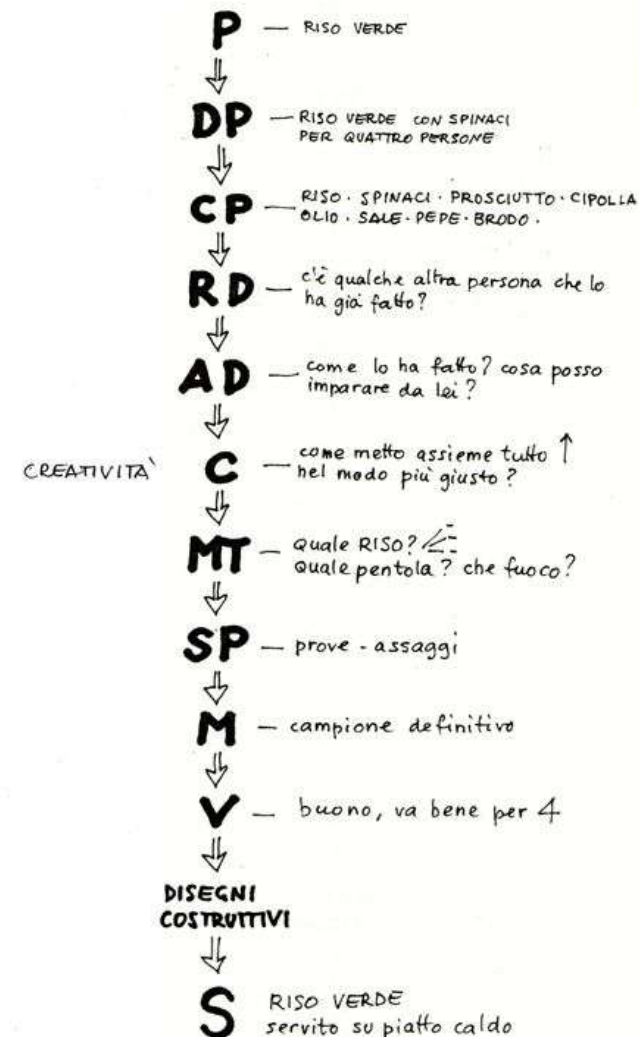 P — RISO VERDE
DP — RISO VERDE CON SPINACI
PER QUATTRO PERSONE
CP — RISO · SPINACI · PROSCIUTTO · CIPOLLA
OLIO · SALE · PEPE · BRODO ·
RD — c'è qualche altra persona che lo
ha già fatto?
AD — come lo ha fatto? cosa posso
imparare da lei?
CREATIVITÀ C — come metto assieme tutto
nel modo più giusto?
MT — Quale RISO?
Quale pentola? che fuoco?
SP — prove - assaggi
M — campione definitivo
V — buono, va bene per 4
DISEGNI
COSTRUTTIVI
S RISO VERDE
servito su piatto caldo